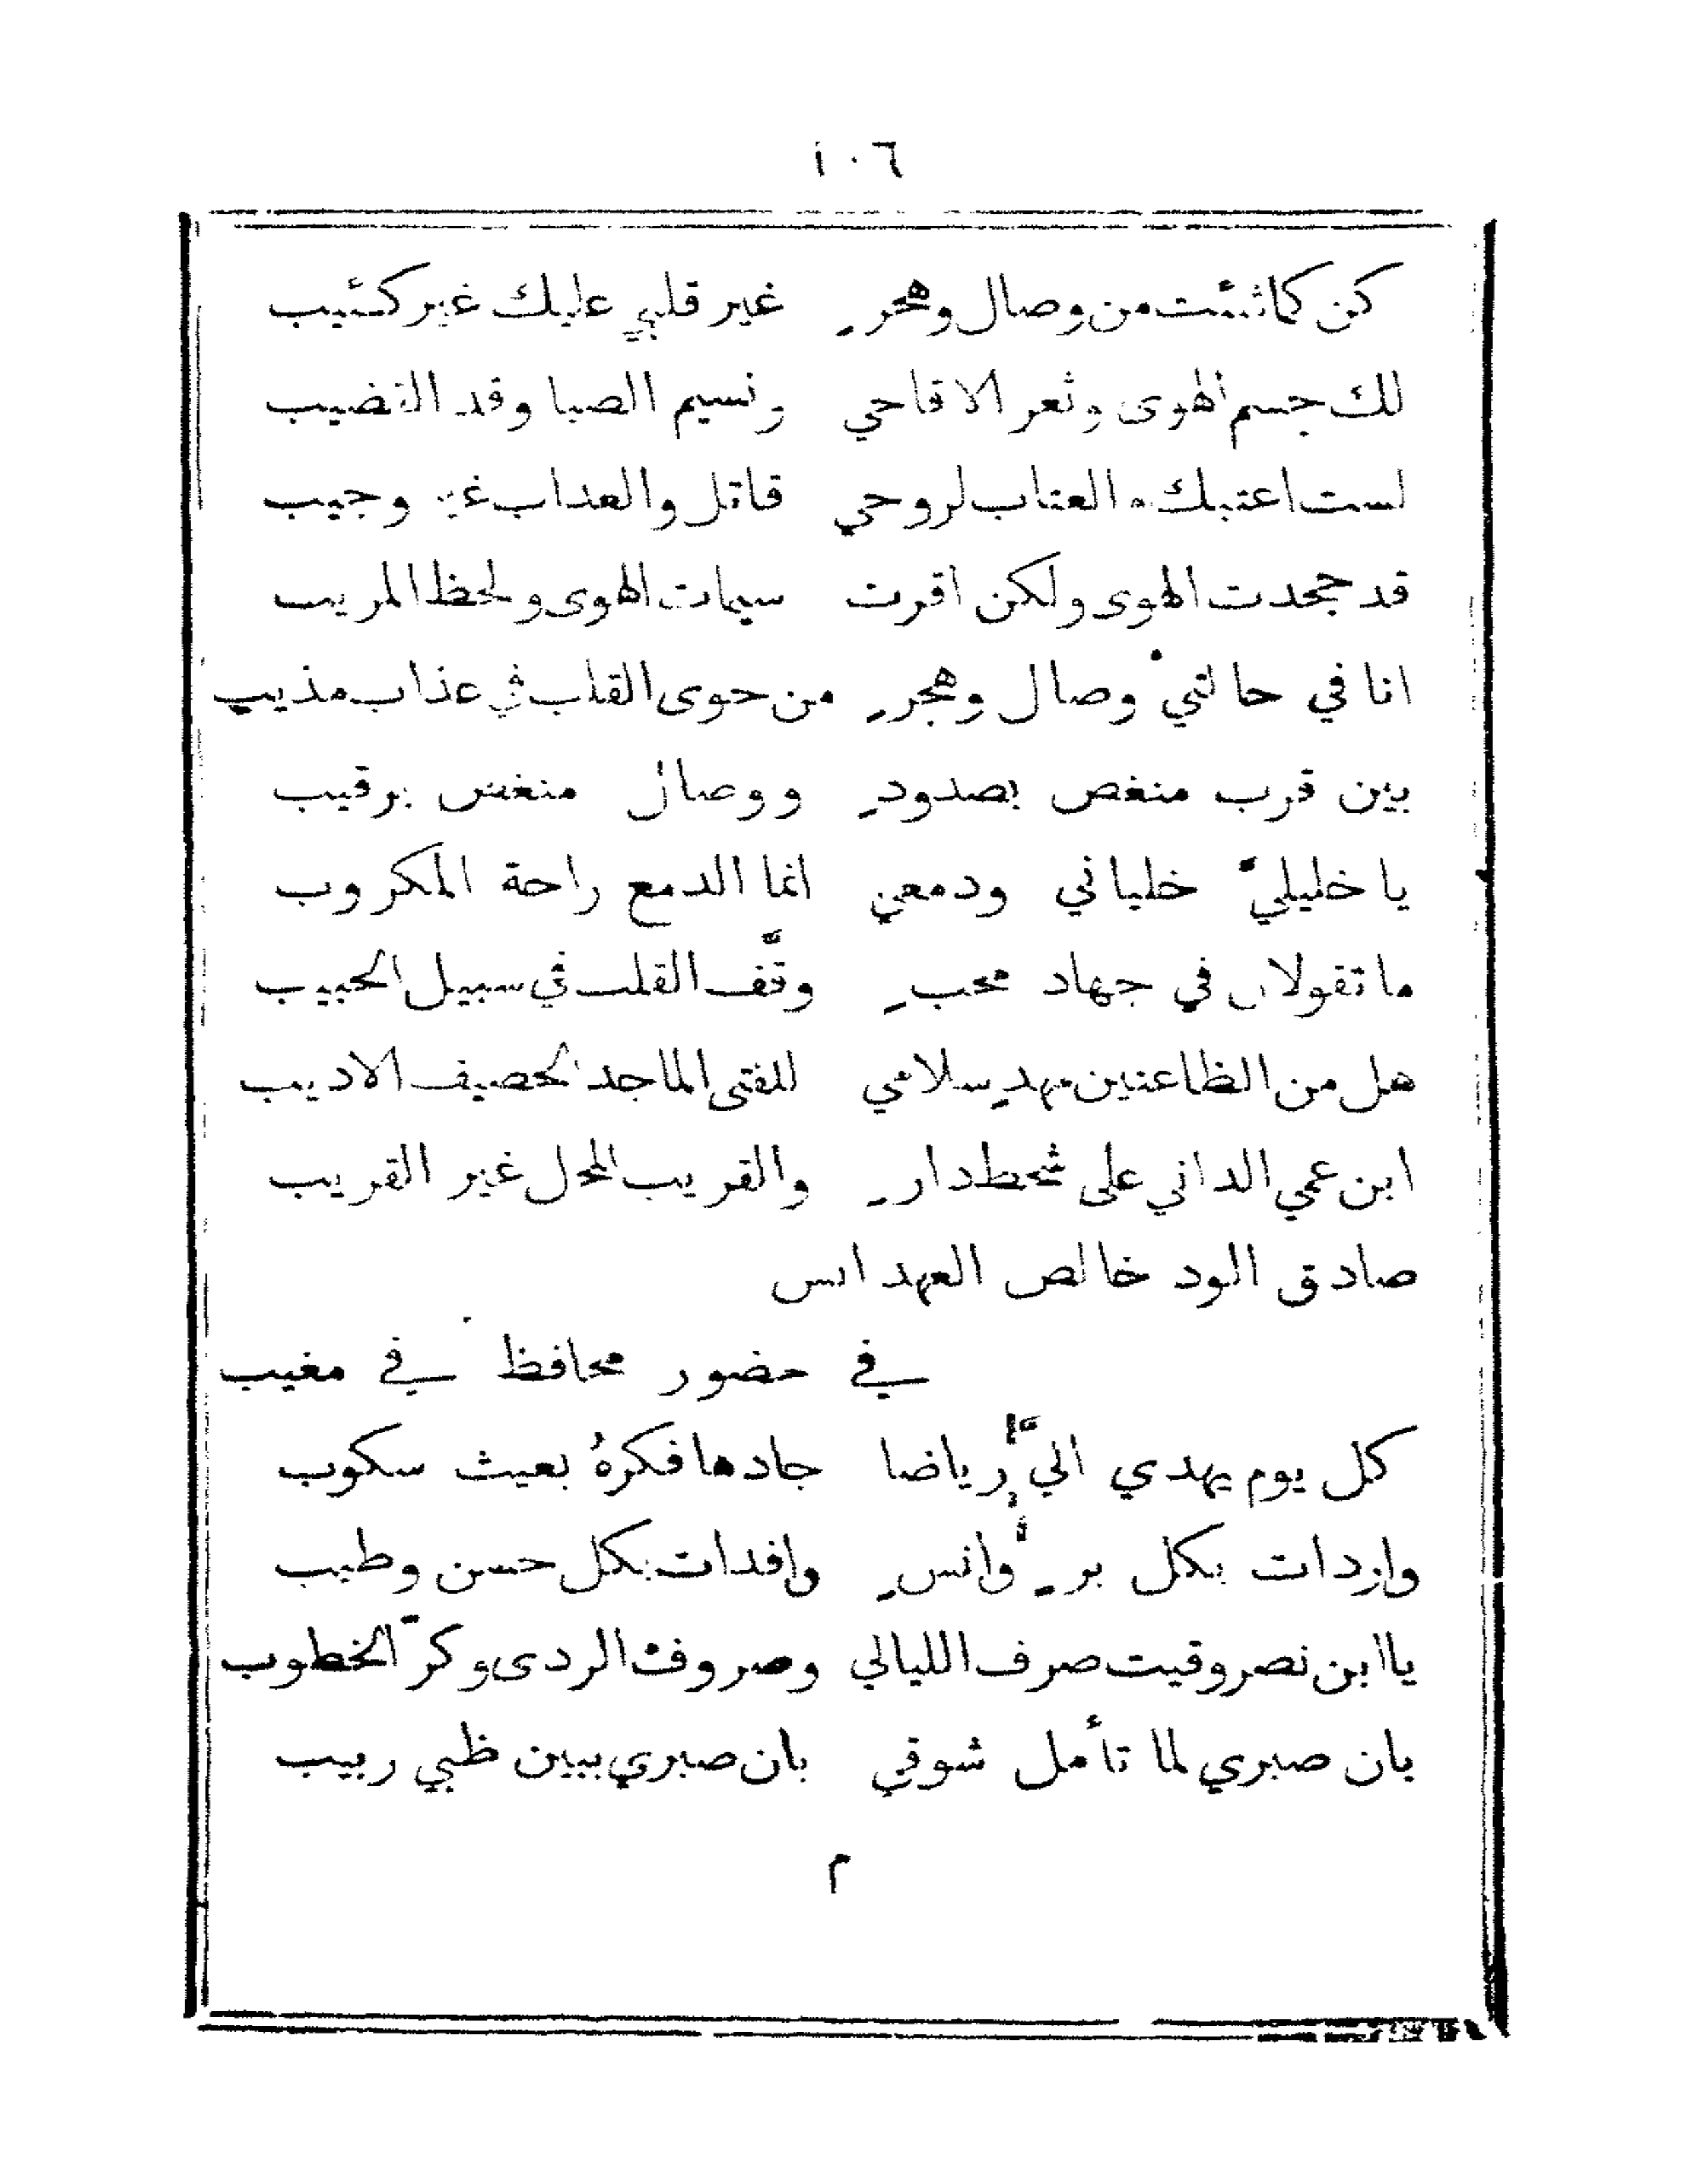 ١٠٦
كن كما شئت من وصال وهجرٍ غير قلبي عليك غير كئيب
لك جسم الهوى وثغر الاقاحي ونسيم الصبا وقد القضيب
لست اعتبك فالعتاب لروحي قاتل والعذاب غير وجيب
قد جحدت الهوى ولكن اقرت سيمات الهوى ولحظ المريب
انا في حالتي وصال وهجرٍ من حوى القلب في عذاب مذيب
بين قرب منغص بصدودٍ ووصال منغص برقيب
يا خليليَّ خلياني ودمعي انما الدمع راحة المكروب
ما تقولان في جهاد محبٍ وقَّف القلب في سبيل الحبيب
هل من الظاعنين مهدٍ سلامي للفتى الماجد الحصيف الاديب
ابن عمي الداني على شحط دارٍ والقريب المحل غير القريب
صادق الود خالص العهد انس
في حضور محافظ في مغيب
كل يوم يهدي اليَّ رياضا جادها فكرهُ بغيث سكوب
واردات بكل برٍ وانسٍ وافدات بكل حسن وطيب
يا ابن نصر وقيت صرف الليالي وصروف الردى وكرّ الخطوب
بان صبري لما تأمل شوقي بان صبري ببين ظبي ربيب
م